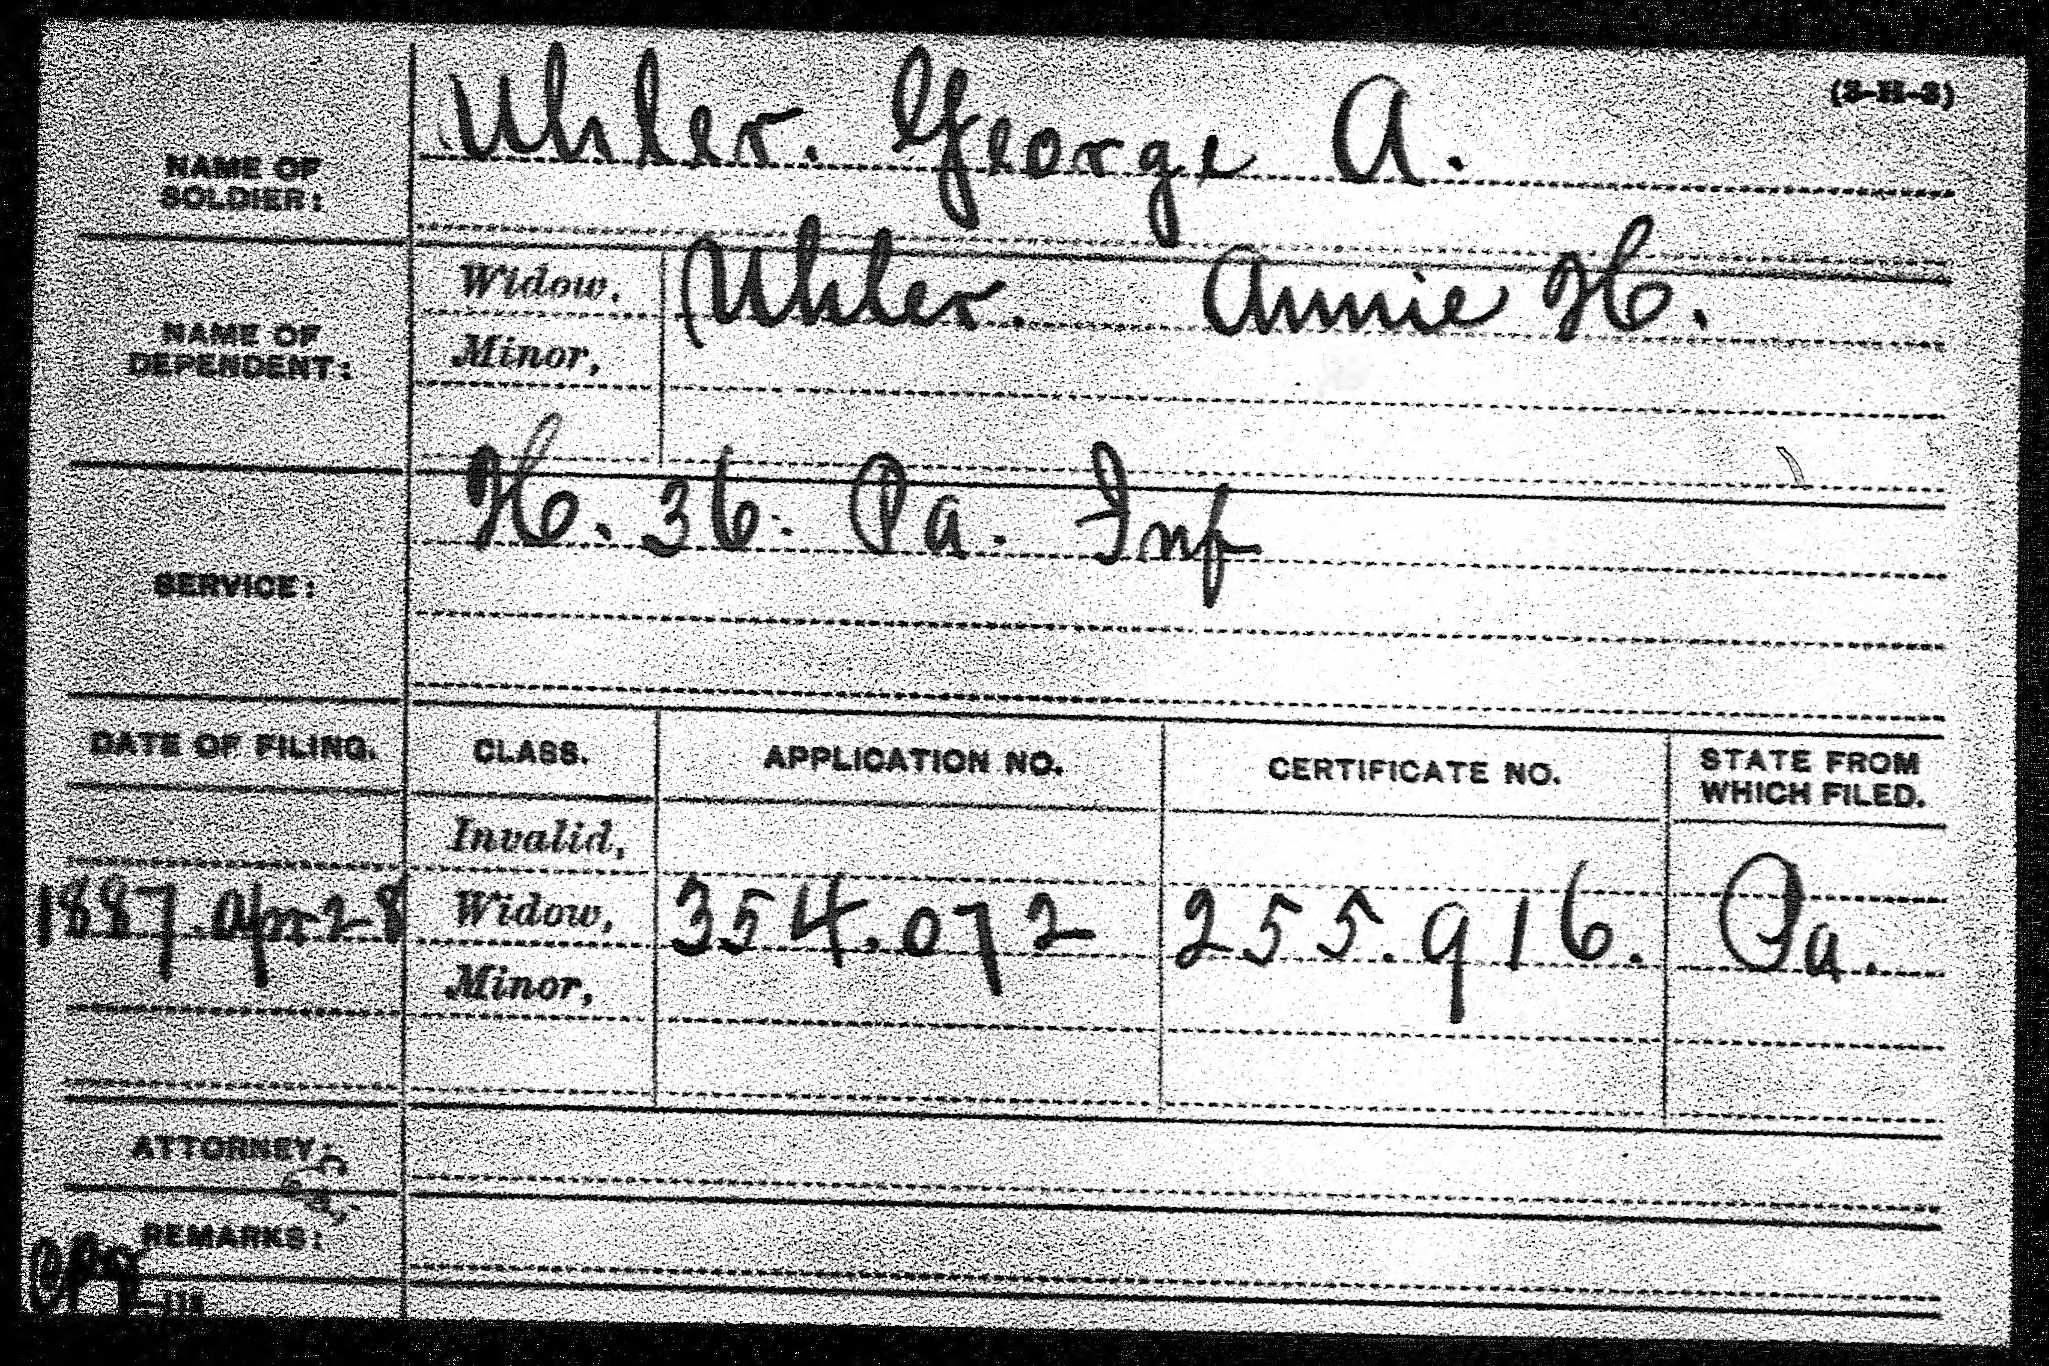 (3-H-3)
Uhler. George A.
NAME OF
SOLDIER:
Widow, Uhler. Annie H.
NAME OF
DEPENDENT:
Minor,
H. 36. Pa. Inf
SERVICE:
DATE OF FILING. CLASS. APPLICATION NO. CERTIFICATE NO. STATE FROM
WHICH FILED.
Invalid,
1887. Apr 28 Widow, 354.072 255.916. Pa.
Minor,
ATTORNEY:
REMARKS: